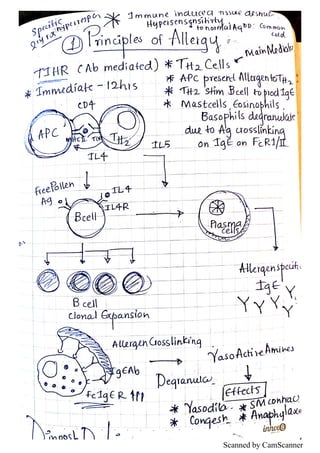 Specific
* Immune induced tissue damage
Hypersensitivity
to normal Ag
Common
Cold
① Principles of Allergy
Main Mediator
TIHR (Ab mediated)
* TH2 Cells
* Immediate - 12hrs
* APC present Allergen to TH2
CD4
* TH2 stim Bcell to prod IgE
* Mastcells, Eosinophils,
Basophils degranulate
due to Ag crosslinking
on IgE on FcR1/II
APC
TH2
IL4
IL5
Free Pollen
Ag
IL4
IL4R
Bcell
Plasma
cells
Allergen specific
IgE
B cell
Clonal Expansion
Allergen Crosslinking
Vaso Active Amines
IgEAb
Degranula
FcIgER
Effects
* Vasodila
* SM contrac
* Congesti
* Anaphylax
Scanned by CamScanner